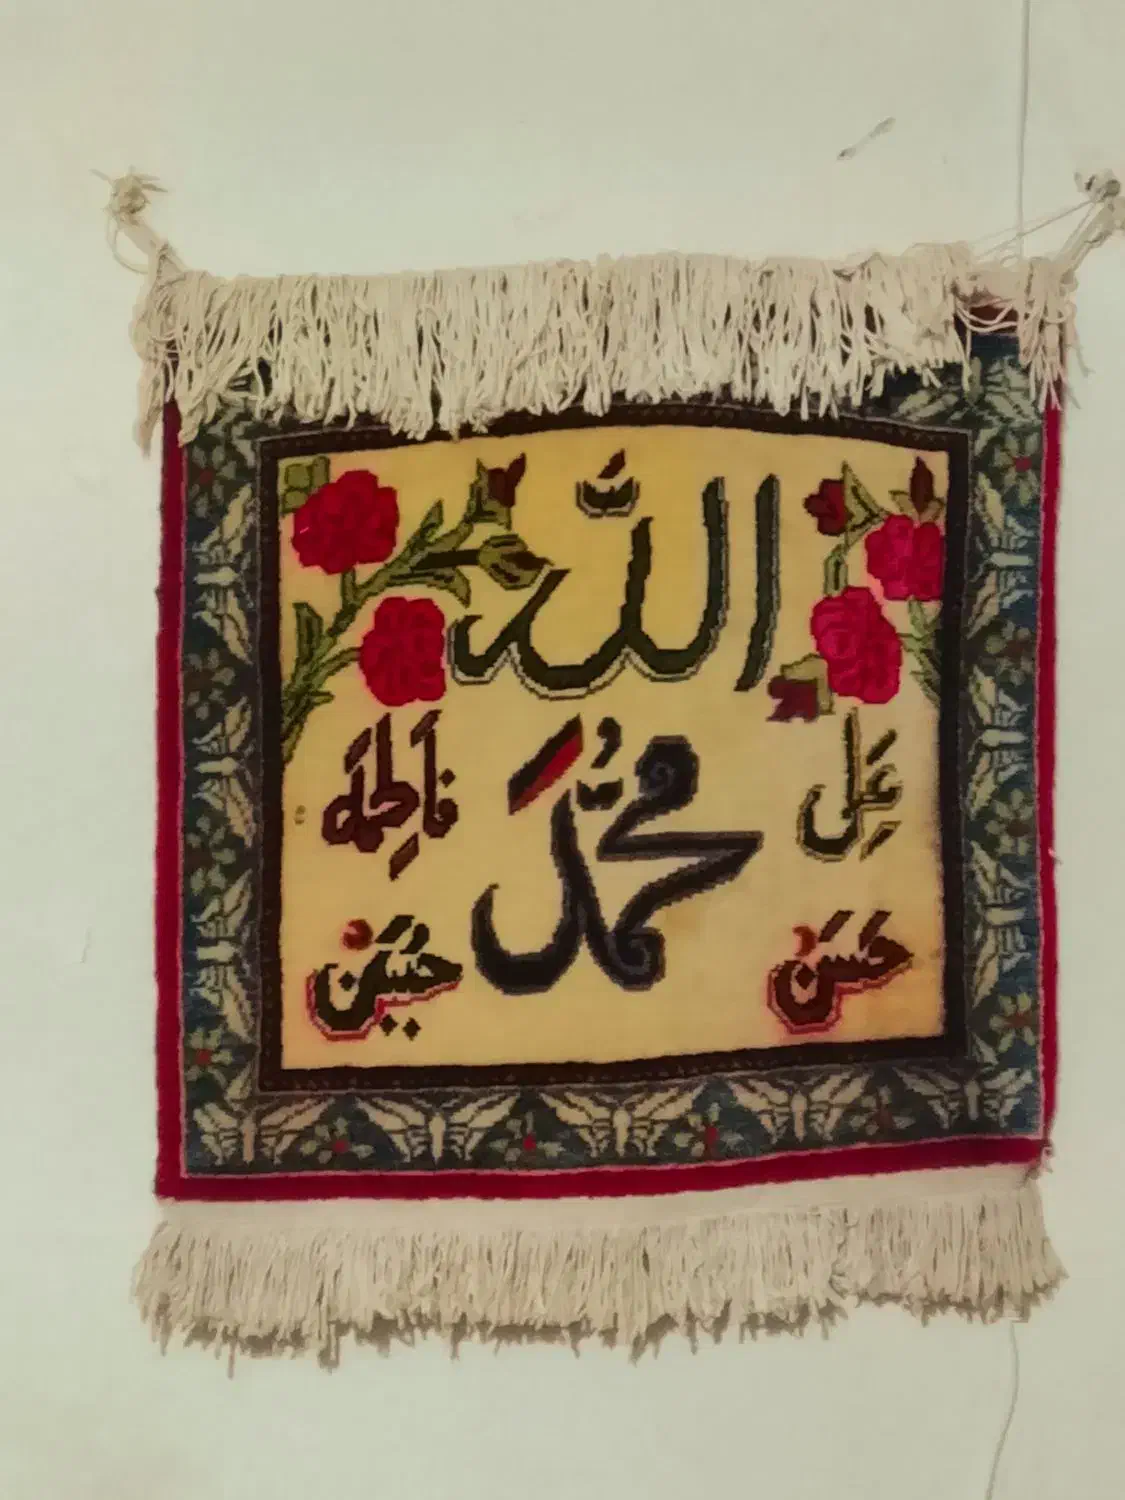 الله
علی محمد فاطمه
حسن حسین